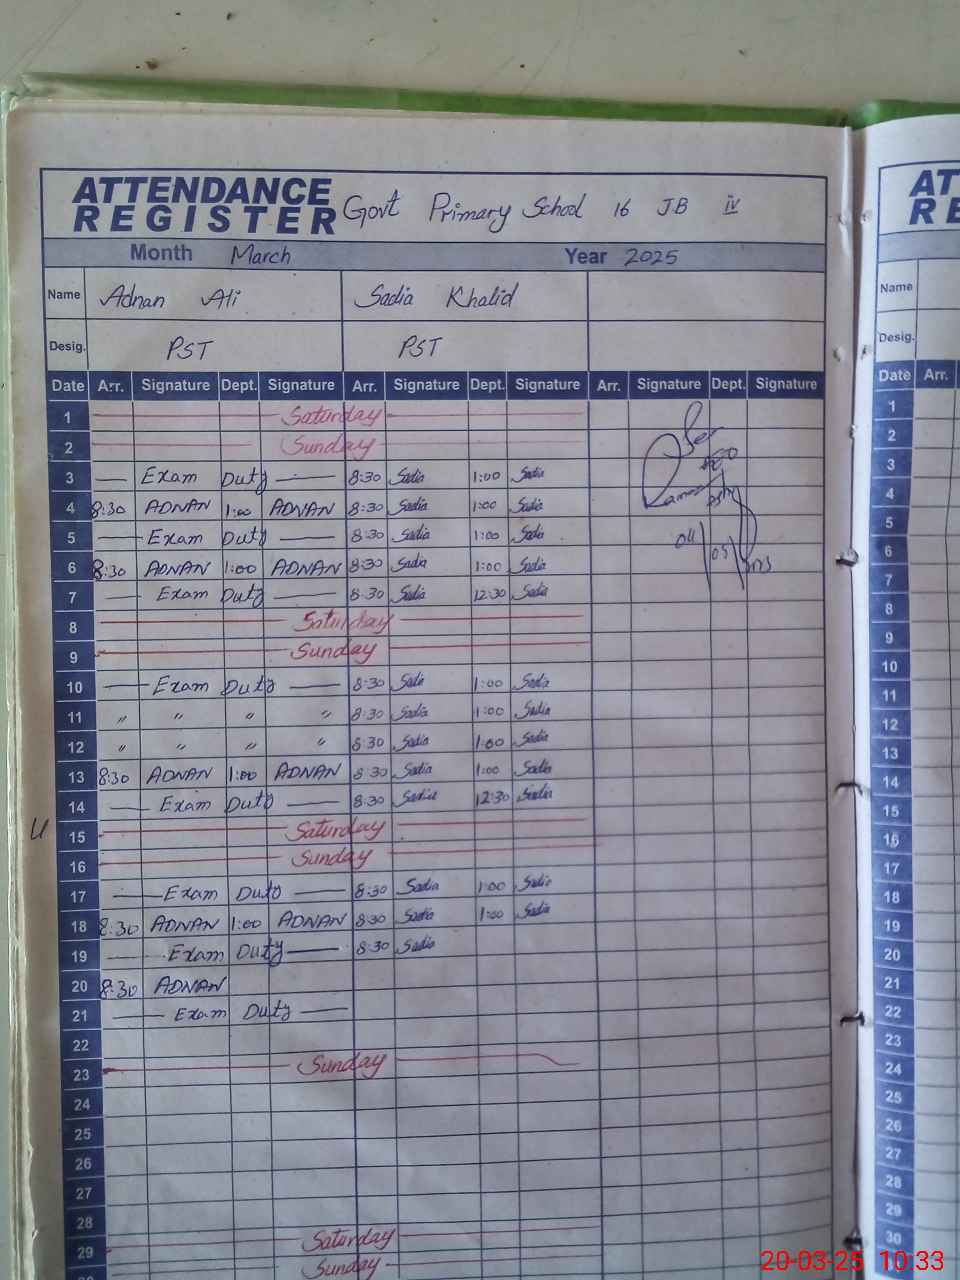 ATTENDANCE
REGISTER Govt Primary School 16 JB iv
Month March Year 2025
Name Adnan Ali Sadia Khalid
Desig. PST PST
Date Arr. Signature Dept. Signature Arr. Signature Dept. Signature Arr. Signature Dept. Signature
1 Saturday
2 Sunday
3 Exam Duty 8:30 Sadia 1:00 Sadia
4 8:30 ADNAN 1:00 ADNAN 8:30 Sadia 1:00 Sadia
5 Exam Duty 8:30 Sadia 1:00 Sadia
6 8:30 ADNAN 1:00 ADNAN 8:30 Sadia 1:00 Sadia
7 Exam Duty 8:30 Sadia 12:30 Sadia
8 Saturday
9 Sunday
10 Exam Duty 8:30 Sadia 1:00 Sadia
11 " " " " 8:30 Sadia 1:00 Sadia
12 " " " " 8:30 Sadia 1:00 Sadia
13 8:30 ADNAN 1:00 ADNAN 8:30 Sadia 1:00 Sadia
14 Exam Duty 8:30 Sadia 12:30 Sadia
15 Saturday
16 Sunday
17 Exam Duty 8:30 Sadia 1:00 Sadia
18 8:30 ADNAN 1:00 ADNAN 8:30 Sadia 1:00 Sadia
19 Exam Duty 8:30 Sadia
20 8:30 ADNAN
21 Exam Duty
22
23 Sunday
24
25
26
27
28
29 Saturday
Sunday
AT
RE
Name
Desig.
Date Arr.
1
2
3
4
5
6
7
8
9
10
11
12
13
14
15
16
17
18
19
20
21
22
23
24
25
26
27
28
29
30
20-03-25 10:33